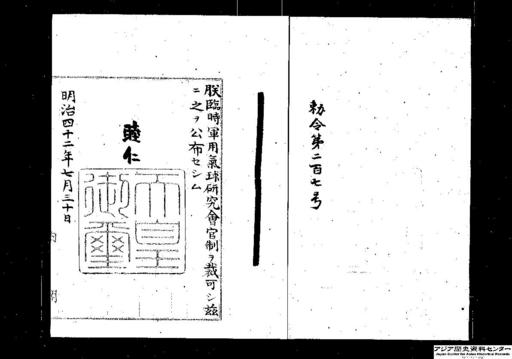 勅令第二百七号
朕臨時軍用氣球研究會官制ヲ裁可シ茲
ニ之ヲ公布セシム
睦仁
天皇御璽
明治四十二年七月三十日
内閣
アジア歴史資料センター
Japan Center for Asian Historical Records